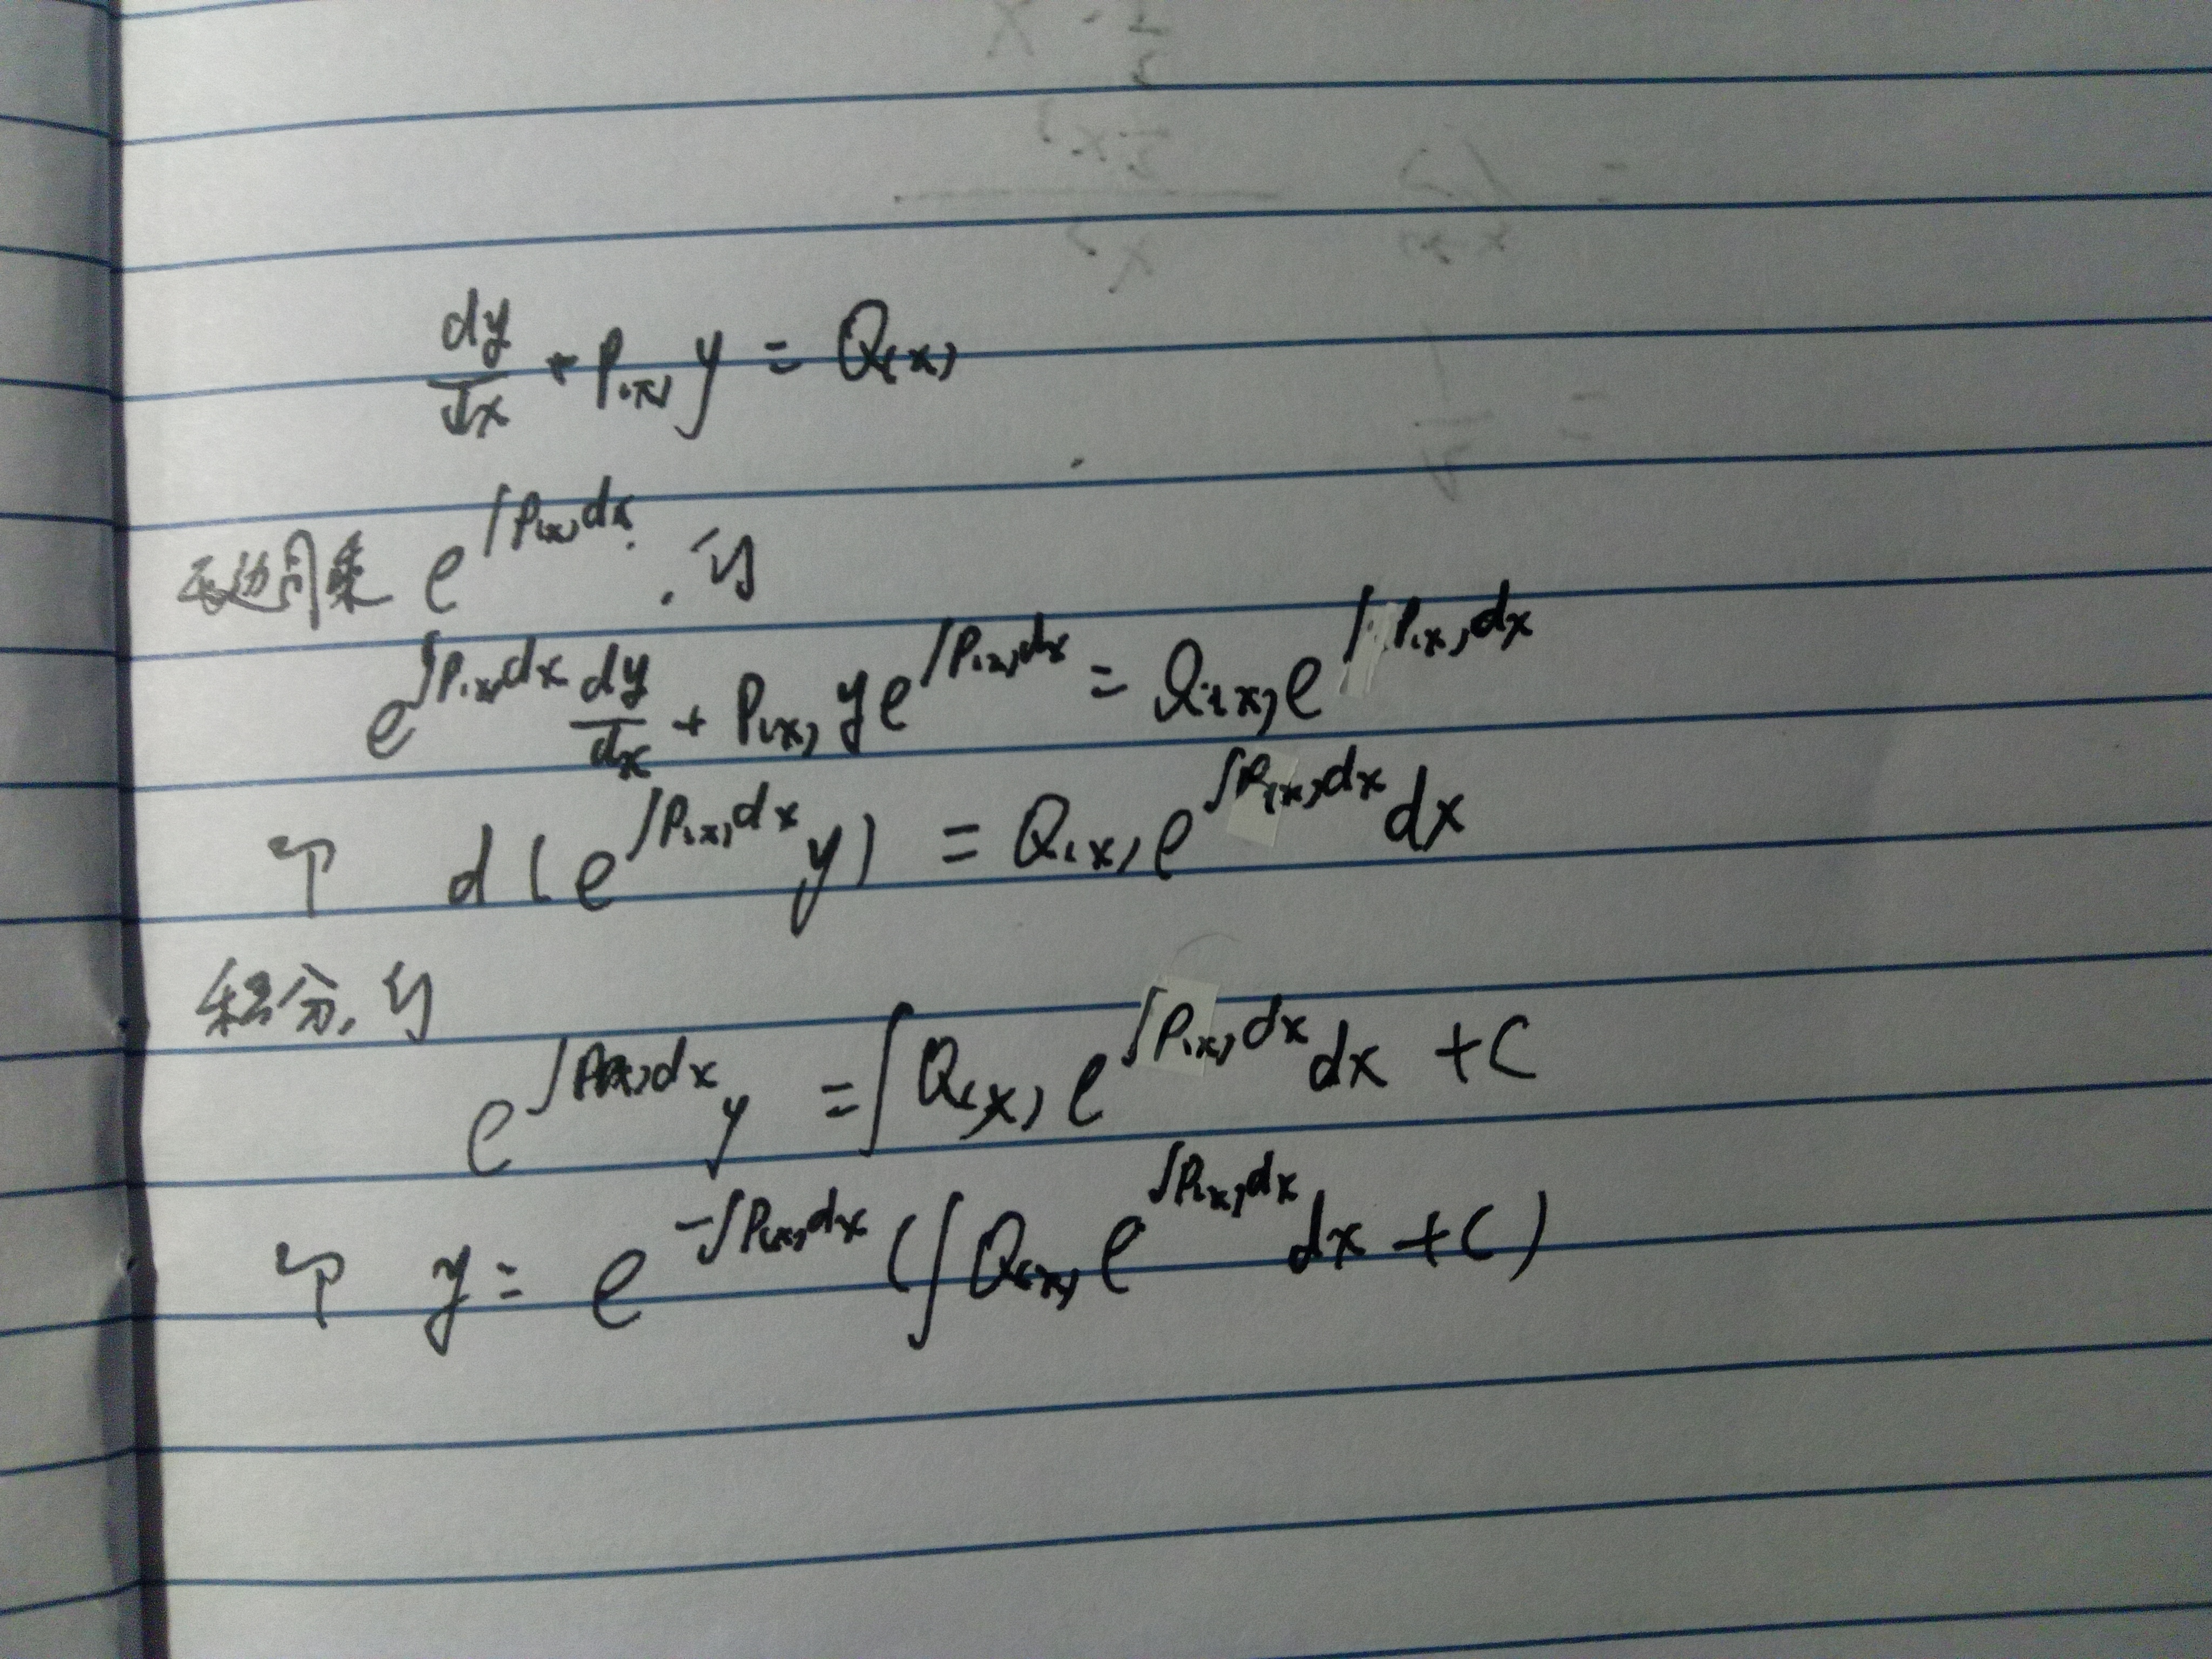 dy/dx + P(x) y = Q(x)
两边同乘 e^{∫P(x)dx}, 得
e^{∫P(x)dx} dy/dx + P(x) y e^{∫P(x)dx} = Q(x) e^{∫P(x)dx}
即 d(e^{∫P(x)dx} y) = Q(x) e^{∫P(x)dx} dx
积分, 得
e^{∫P(x)dx} y = ∫Q(x) e^{∫P(x)dx} dx + C
即 y = e^{-∫P(x)dx} (∫Q(x) e^{∫P(x)dx} dx + C)